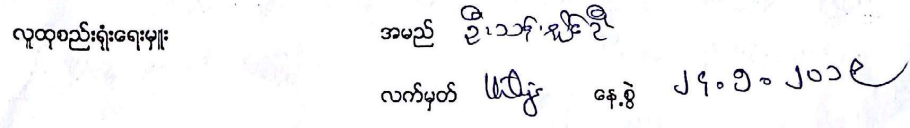 လူထုစည်းရုံးရေးမှူး အမည် ဦးသန်းနိုင်ဦး
လက်မှတ် နေ့စွဲ ၂၄.၅.၂၀၁၉